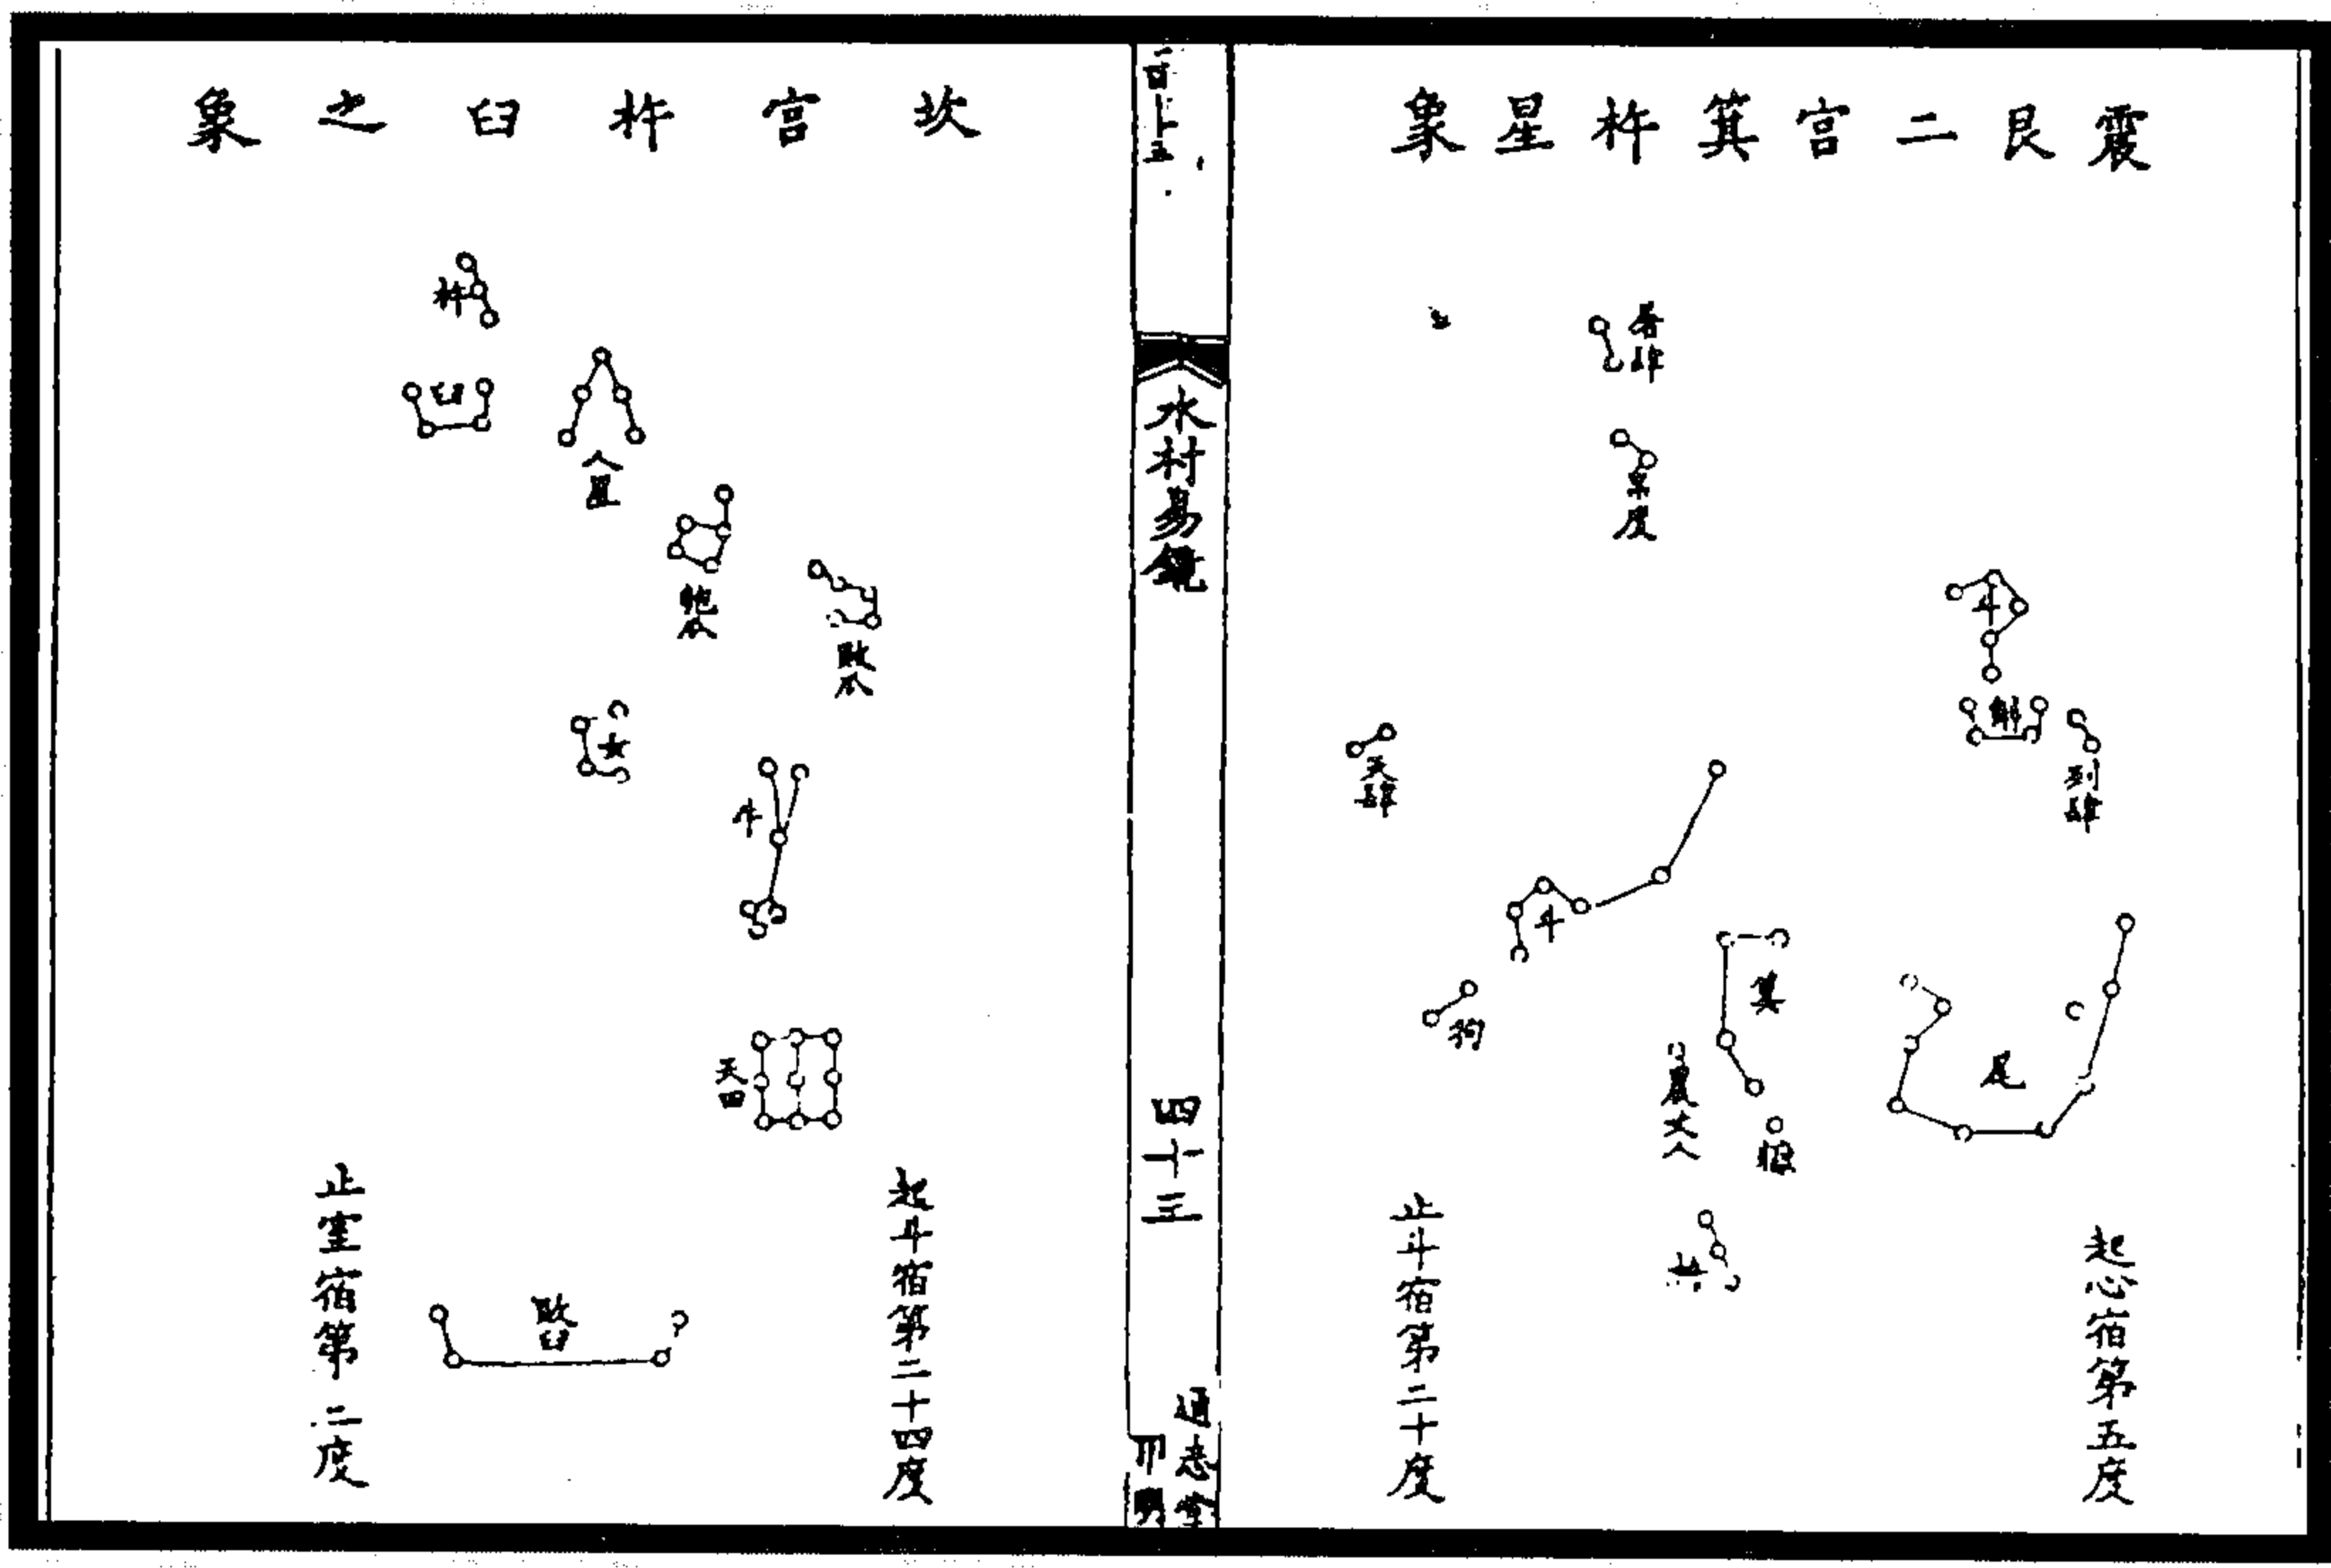 震艮二宫箕杵星象
屠肆
帛度
斗
斛
列肆
天肆
斗
箕
狗
尾
農丈人
糠
杵
起心宿第五度
止斗宿第二十度
水村易鏡
四十三
通志堂
坎宫杵臼之象
杵
臼
人星
匏瓜
敗瓜
女
牛
天田
敗臼
起斗宿第二十四度
止室宿第二度